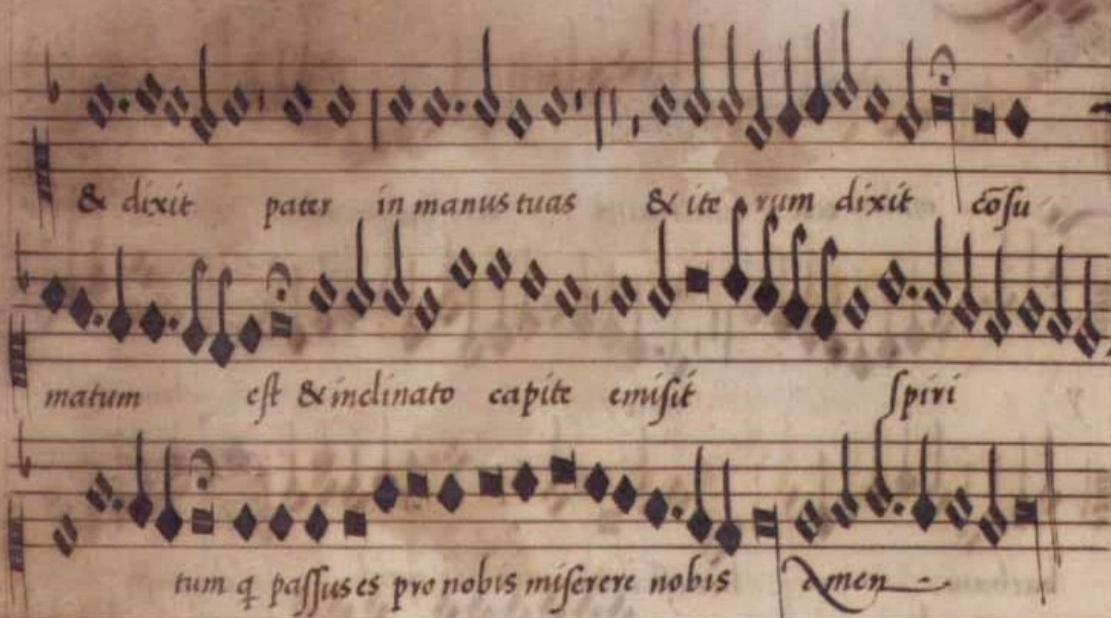 & dixit pater in manus tuas & ite rum dixit cōsu
matum est & inclinato capite emisit spiri
tum q̄ passus es pro nobis miserere nobis Amen